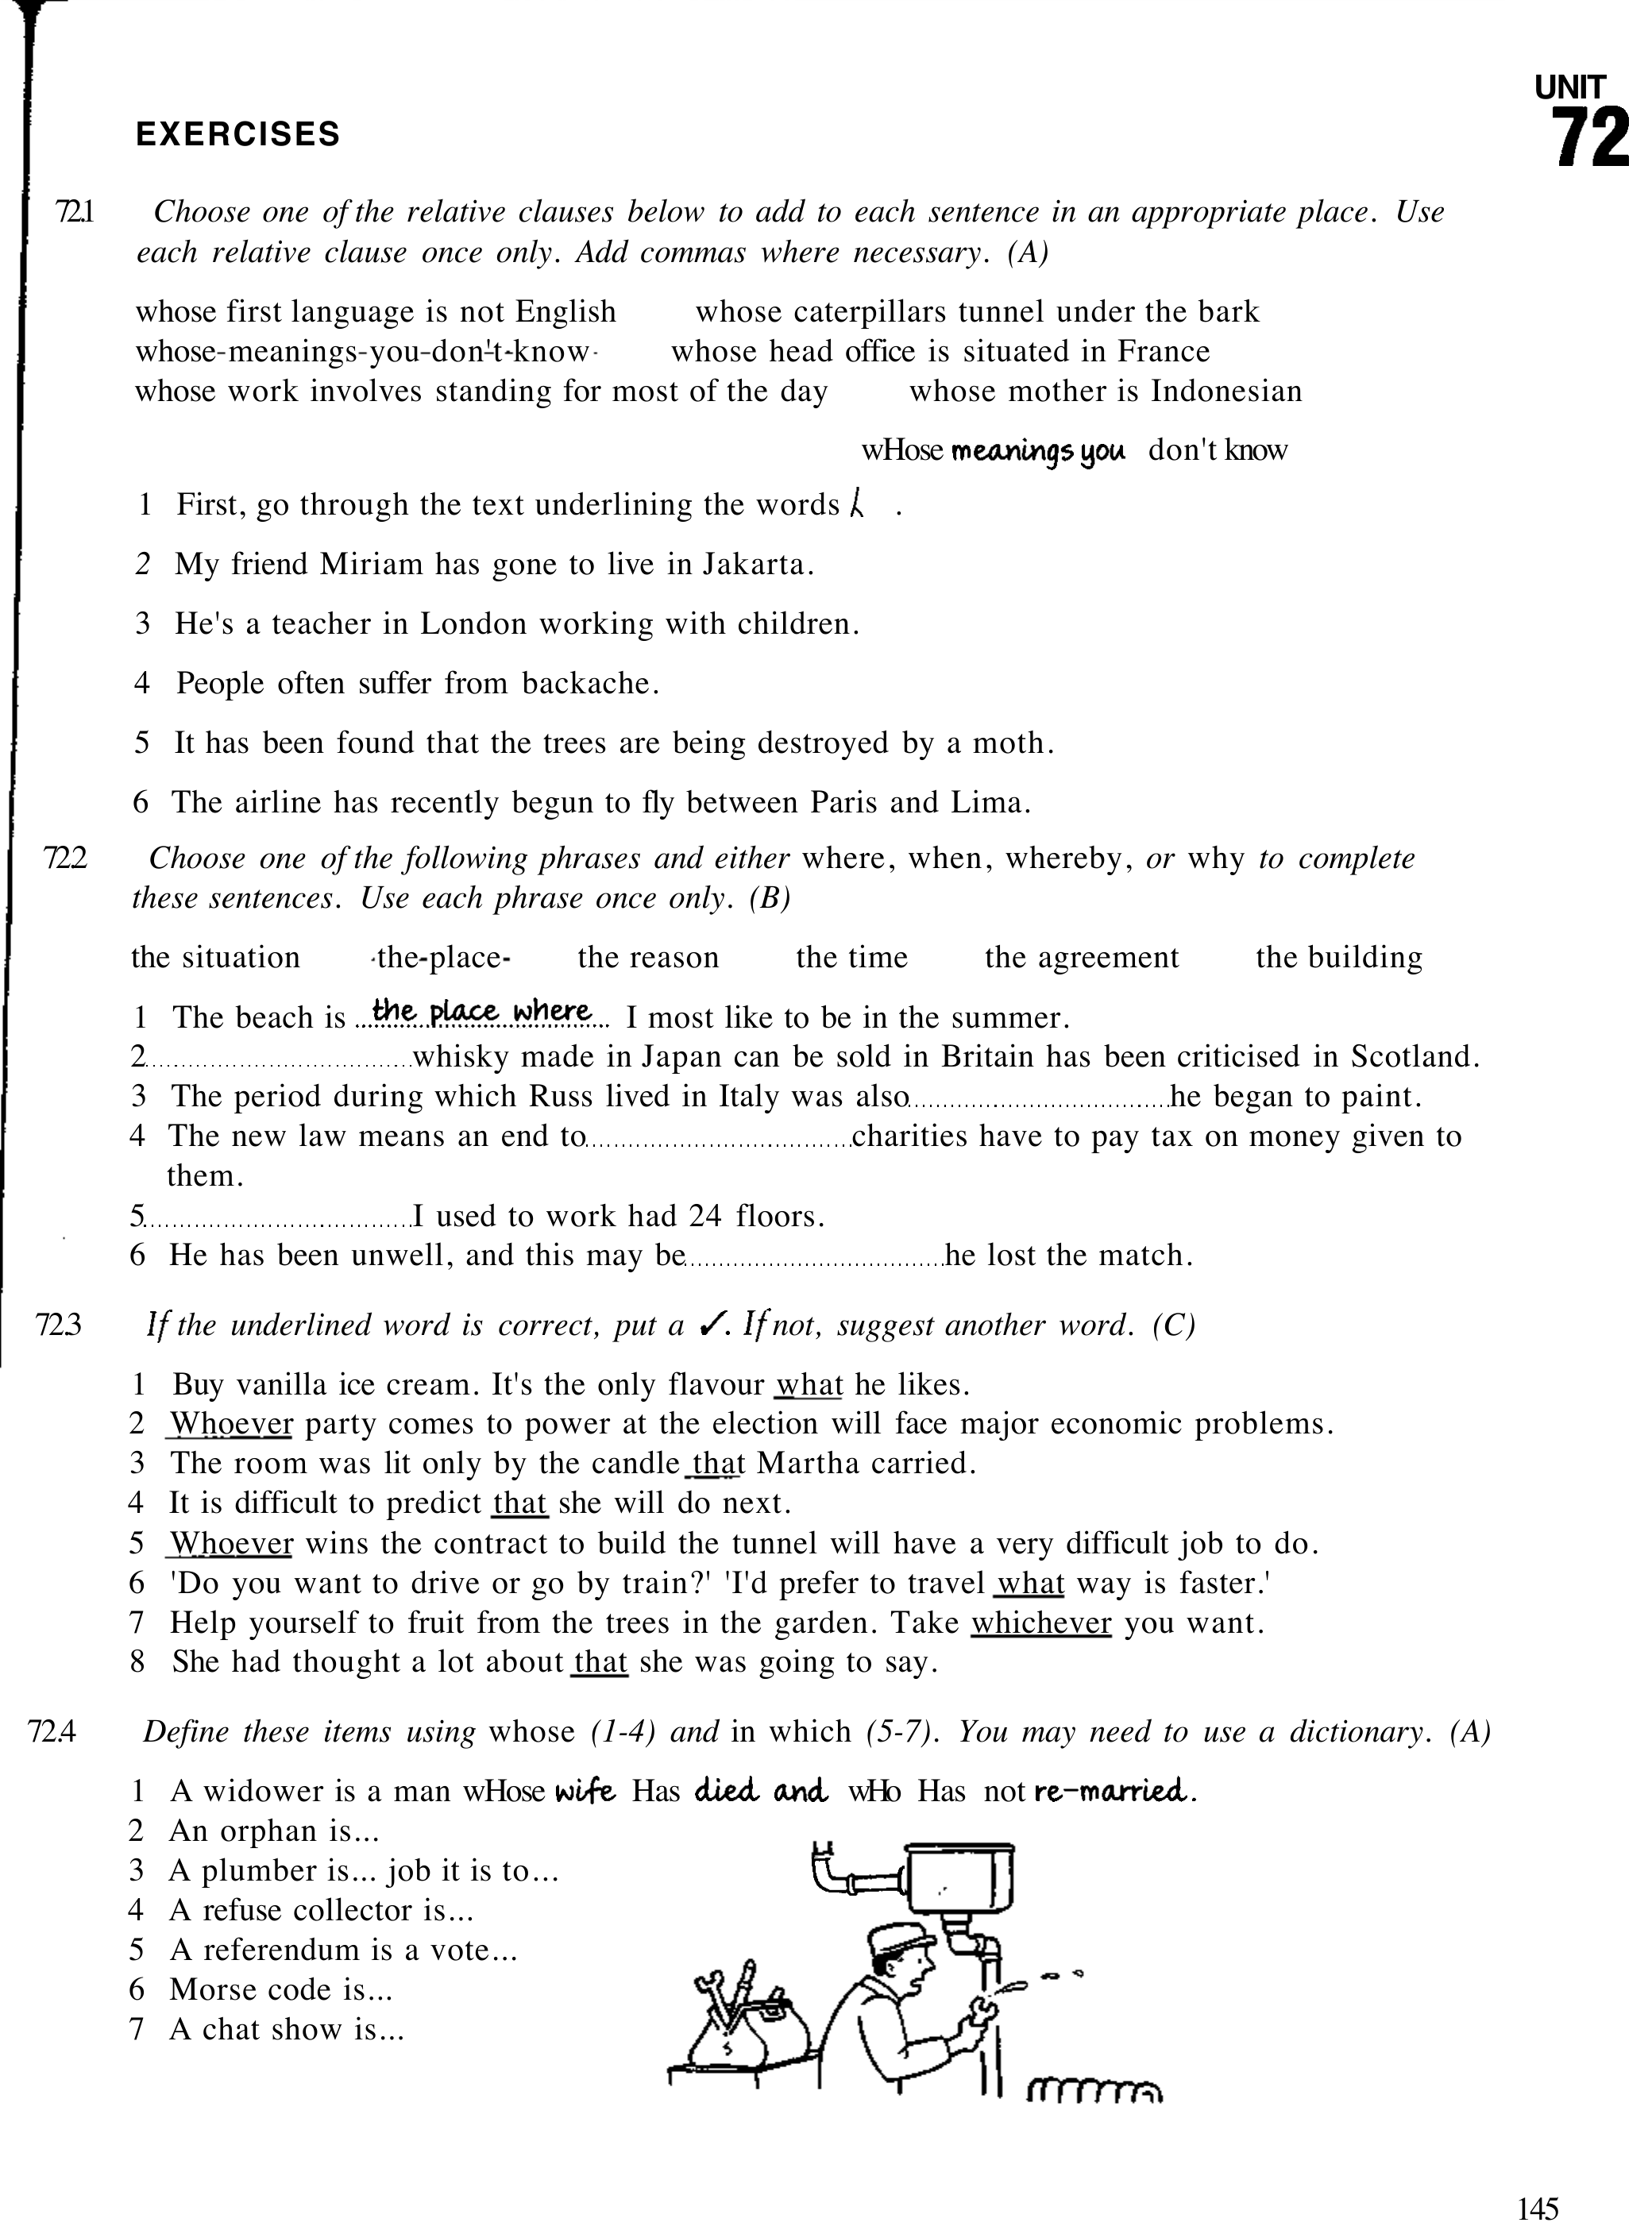 UNIT
72
EXERCISES
72.1 Choose one of the relative clauses below to add to each sentence in an appropriate place. Use
each relative clause once only. Add commas where necessary. (A)
whose first language is not English whose caterpillars tunnel under the bark
whose-meanings-you-don't-know- whose head office is situated in France
whose work involves standing for most of the day whose mother is Indonesian
wHose meanings you don't know
1 First, go through the text underlining the words .
2 My friend Miriam has gone to live in Jakarta.
3 He's a teacher in London working with children.
4 People often suffer from backache.
5 It has been found that the trees are being destroyed by a moth.
6 The airline has recently begun to fly between Paris and Lima.
72.2 Choose one of the following phrases and either where, when, whereby, or why to complete
these sentences. Use each phrase once only. (B)
the situation -the-place- the reason the time the agreement the building
1 The beach is the place where I most like to be in the summer.
2 .................................... whisky made in Japan can be sold in Britain has been criticised in Scotland.
3 The period during which Russ lived in Italy was also .................................... he began to paint.
4 The new law means an end to .................................... charities have to pay tax on money given to
them.
5 .................................... I used to work had 24 floors.
6 He has been unwell, and this may be .................................... he lost the match.
72.3 If the underlined word is correct, put a ✓. If not, suggest another word. (C)
1 Buy vanilla ice cream. It's the only flavour what he likes.
2 Whoever party comes to power at the election will face major economic problems.
3 The room was lit only by the candle that Martha carried.
4 It is difficult to predict that she will do next.
5 Whoever wins the contract to build the tunnel will have a very difficult job to do.
6 'Do you want to drive or go by train?' 'I'd prefer to travel what way is faster.'
7 Help yourself to fruit from the trees in the garden. Take whichever you want.
8 She had thought a lot about that she was going to say.
72.4 Define these items using whose (1-4) and in which (5-7). You may need to use a dictionary. (A)
1 A widower is a man wHose wife Has died and wHo Has not re-married.
2 An orphan is...
3 A plumber is... job it is to...
4 A refuse collector is...
5 A referendum is a vote...
6 Morse code is...
7 A chat show is...
145